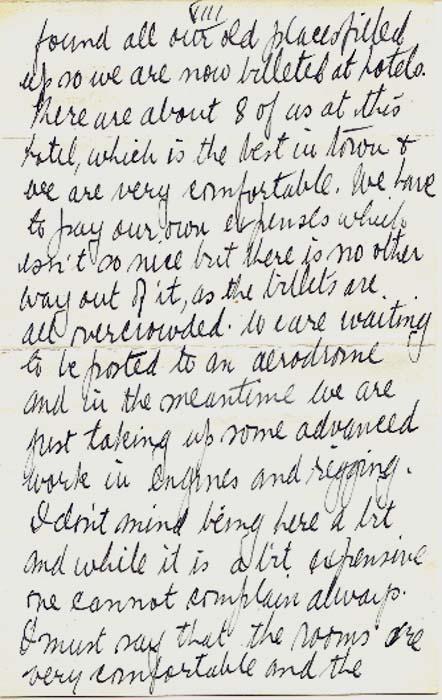 VIII
found all our old places filled
up so we are now billeted at hotels.
There are about 8 of us at this
hotel, which is the best in town &
we are very comfortable. We have
to pay our own expenses which
isn't so nice but there is no other
way out of it, as the billets are
all overcrowded. We are waiting
to be posted to an aerodrome
and in the meantime we are
just taking up some advanced
work in engines and rigging.
I don't mind being here a bit
and while it is a bit expensive
one cannot complain always.
I must say that the rooms are
very comfortable and the